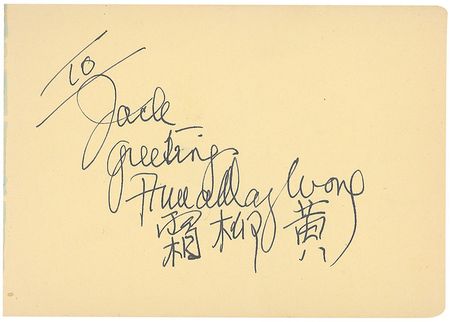 To
Jack
Greetings
Anna May Wong
霜柳黃